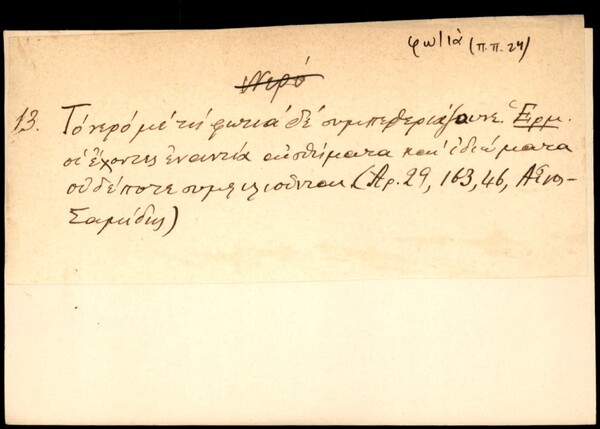 φωτιά (π.π. 24)
νερό
13. Τό νερό μέ τή φωτιά δέ συμπεθεριάζουνε. Ἑρμ.
οἱ ἔχοντες ἐναντία αἰσθήματα καί ἰδιώματα
οὐδέποτε συμφιλιοῦνται (Αρ. 29, 163, 46,
Σαμίδης)